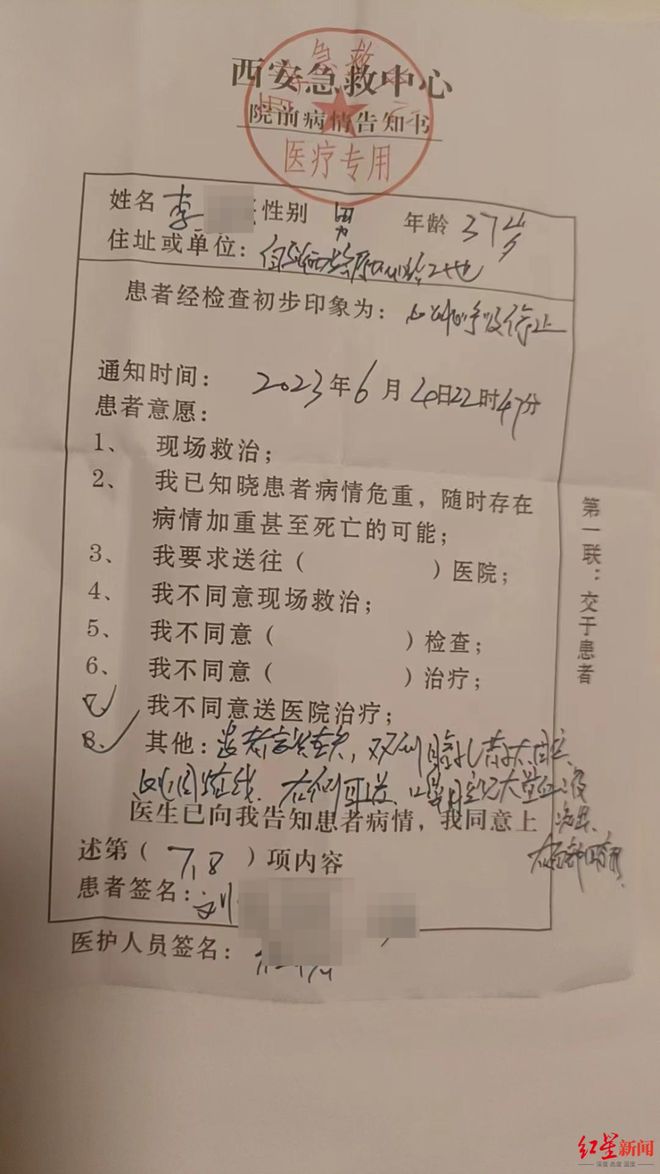 西安急救中心
院前病情告知书
急救
医疗专用
姓名 李 性别 男 年龄 37岁
住址或单位：
患者经检查初步印象为：心跳呼吸停止
通知时间：2023年6月4日22时47分
患者意愿：
1、 现场救治；
2、 我已知晓患者病情危重，随时存在
病情加重甚至死亡的可能；
3、 我要求送往（ ）医院；
4、 我不同意现场救治；
5、 我不同意（ ）检查；
6、 我不同意（ ）治疗；
7、 我不同意送医院治疗；
8、 其他：患者意识丧失，双侧瞳孔散大固定
右侧耳道、口鼻腔见大量血液
医生已向我告知患者病情，我同意上
述第（7,8）项内容
患者签名：刘
医护人员签名：
第一联：交于患者
红星新闻
深度 态度 温度